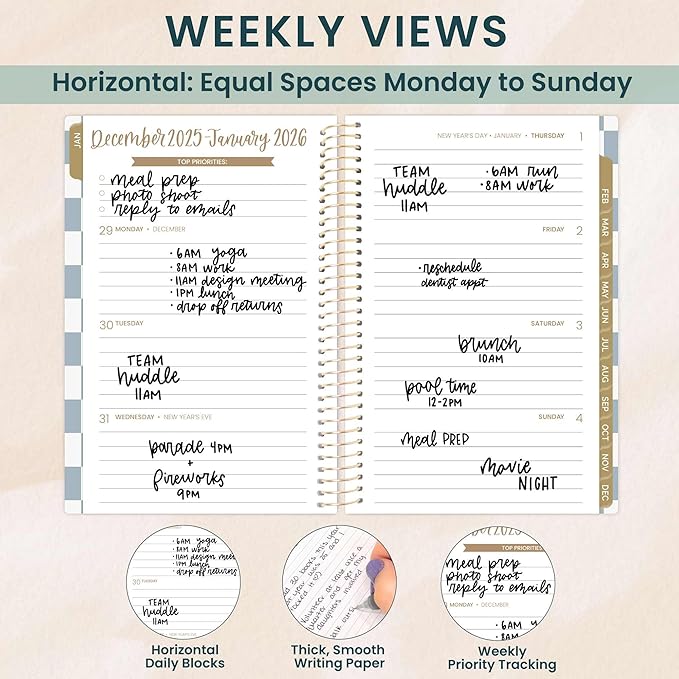 WEEKLY VIEWS
Horizontal: Equal Spaces Monday to Sunday
JAN
December 2025-January 2026
TOP PRIORITIES:
meal prep
photo shoot
reply to emails
29 MONDAY • DECEMBER
• 6AM yoga
• 8AM work
• 11AM design meeting
• 1PM lunch
• drop off returns
30 TUESDAY
TEAM
huddle
11AM
31 WEDNESDAY • NEW YEAR'S EVE
parade 4PM
+
fireworks
9PM
NEW YEAR'S DAY • JANUARY • THURSDAY 1
TEAM
huddle
11AM
• 6AM run
• 8AM work
FRIDAY 2
• reschedule
dentist appt
SATURDAY 3
brunch
10AM
pool time
12-2PM
SUNDAY 4
meal PREP
movie
NIGHT
FEB
MAR
APR
MAY
JUN
JUL
AUG
SEP
OCT
NOV
DEC
• 6AM yoga
• 8AM work
• 11AM design meet
• 1PM lunch
• drop off returns
30 TUESDAY
TEAM
huddle
11AM
Horizontal
Daily Blocks
30 books this year
Volunteer at least once a
daughters involved
Thick, Smooth
Writing Paper
TOP PRIORITIES
meal prep
photo shoot
reply to emails
MONDAY • DECEMBER
• 6AM
• 8AM
Weekly
Priority Tracking